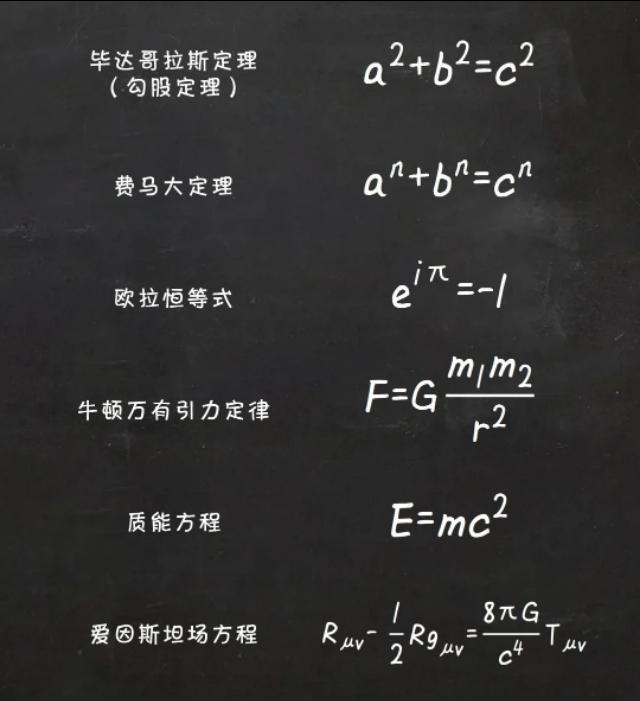 毕达哥拉斯定理
（勾股定理）
a²+b²=c²
费马大定理
aⁿ+bⁿ=cⁿ
欧拉恒等式
e^{iπ}=-1
牛顿万有引力定律
F=G\frac{m₁m₂}{r²}
质能方程
E=mc²
爱因斯坦场方程
R_{μν}-\frac{1}{2}Rg_{μν}=\frac{8πG}{c⁴}T_{μν}